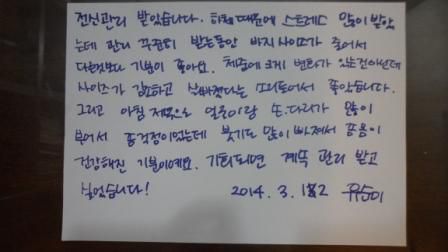 전신관리 받았습니다. 하체 때문에 스트레스 많이 받았
는데 관리 꾸준히 받는동안 바지 사이즈가 줄어서
다른것보다 기분이 좋아요. 체중에 크게 변화가 있는건아닌데
사이즈가 감소하고 살빠졌다는 소리들어서 좋았습니다.
그리고 아침 저녁으로 얼굴이랑 손.다리가 많이
부어서 좀 걱정이었는데 붓기도 많이 빠져서 좀 몸이
건강해진 기분이에요. 기회되면 계속 관리 받고
싶었습니다! 2014. 3. 12